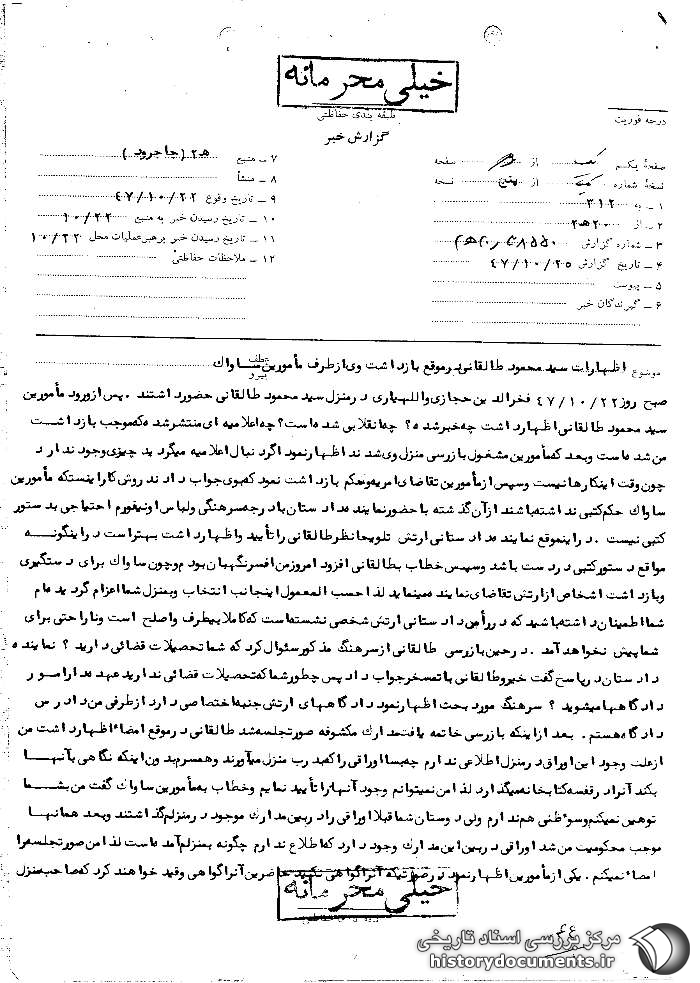 ۹
خیلی محرمانه
طبقه بندی حفاظتی
گزارش خبر
درجه فوریت
صفحهٔ یکم یک از دو صفحه
نسخهٔ شماره یک از نسخه
۱ ـ به ۳۱۲
۲ ـ از ۲۰ هـ ۲
۳ ـ شماره گزارش
۴ ـ تاریخ گزارش ۴۷/۱۰/۲۵
۵ ـ پیوست
۶ ـ گیرندگان خبر
۷ ـ منبع هـ ۲ (جاجرود)
۸ ـ منشأ
۹ ـ تاریخ وقوع ۴۷/۱۰/۲۲
۱۰ ـ تاریخ رسیدن خبر به منبع ۱۰/۲۲
۱۱ ـ تاریخ رسیدن خبر برهبر عملیات محل ۱۰/۲۲
۱۲ ـ ملاحظات حفاظتی
موضوع اظهارات سید محمود طالقانی در موقع بازداشت وی از طرف مأمورین ساواک
عطف
پیرو
صبح روز ۴۷/۱۰/۲۲ فخرالدین حجازی واللهیاری در منزل سید محمود طالقانی حضور داشتند . پس از ورود مأمورین
سید محمود طالقانی اظهار داشت چه خبر شده ؟ چه انقلابی شده است ؟ چه اعلامیه ای منتشر شده که موجب بازداشت
من شده است وبعد که مأمورین مشغول بازرسی منزل وی شدند اظهار نمود اگر دنبال اعلامیه میگردید چیزی وجود ندارد
چون وقت اینکارها نیست وسپس از مأمورین تقاضای امریه وحکم بازداشت نمود که بوی جواب دادند روش کار اینستکه مأمورین
ساواک حکم کتبی نداشته باشند از آن گذشته با حضور نماینده دادستان با درجه سرهنگی ولباس اونیفورم احتیاجی بدستور
کتبی نیست . در اینموقع نماینده دادستانی ارتش تلویحا نظر طالقانی را تأیید واظهار داشت بهتر است در اینگونه
مواقع دستور کتبی در دست باشد وسپس خطاب بطالقانی افزود امروز من افسر نگهبان بودم وچون ساواک برای دستگیری
وبازداشت اشخاص از ارتش تقاضای نماینده مینماید لذا حسب المعمول اینجانب انتخاب وبمنزل شما اعزام گردیده ام
شما اطمینان داشته باشید که در رأس دادستانی ارتش شخصی نشسته است که کاملا بیطرف واصلح است وناراحتی برای
شما پیش نخواهد آمد . در حین بازرسی طالقانی از سرهنگ مذکور سئوال کرد که شما تحصیلات قضائی دارید ؟ نماینده
دادستان در پاسخ گفت خیر وطالقانی با تمسخر جواب داد پس چطور شما که تحصیلات قضائی ندارید عهده دار امور
دادگاهها میشوید ؟ سرهنگ مورد بحث اظهار نمود دادگاههای ارتش جنبه اختصاصی دارد از طرفی من دادرس
دادگاه هستم . بعد از اینکه بازرسی خاتمه یافت مدارک مکشوفه صورتجلسه شد طالقانی در موقع امضاء اظهار داشت من
از علت وجود این اوراق در منزل اطلاعی ندارم چه بسا اوراقی را که بدرب منزل میآورند وهمسرم بدون اینکه نگاهی بآنها
بکند آنرا در قفسه کتابخانه میگذارد لذا من نمیتوانم وجود آنها را تأیید نمایم وخطاب به مأمورین ساواک گفت من بشما
توهین نمیکنم وسوءظنی هم ندارم ولی دوستان شما قبلا اوراقی را در بین مدارک موجود در منزلم گذاشتند وبعد همانها
موجب محکومیت من شد اوراقی در بین این مدارک وجود دارد که اطلاع ندارم چگونه بمنزلم آمده است لذا من صورتجلسه را
امضاء نمیکنم . یکی از مأمورین اظهار نمود در صورتیکه آنرا گواهی نکنید حاضرین آنرا گواهی وقید خواهند کرد که صاحب منزل
خیلی محرمانه
مرکز بررسی اسناد تاریخی
historydocuments.ir